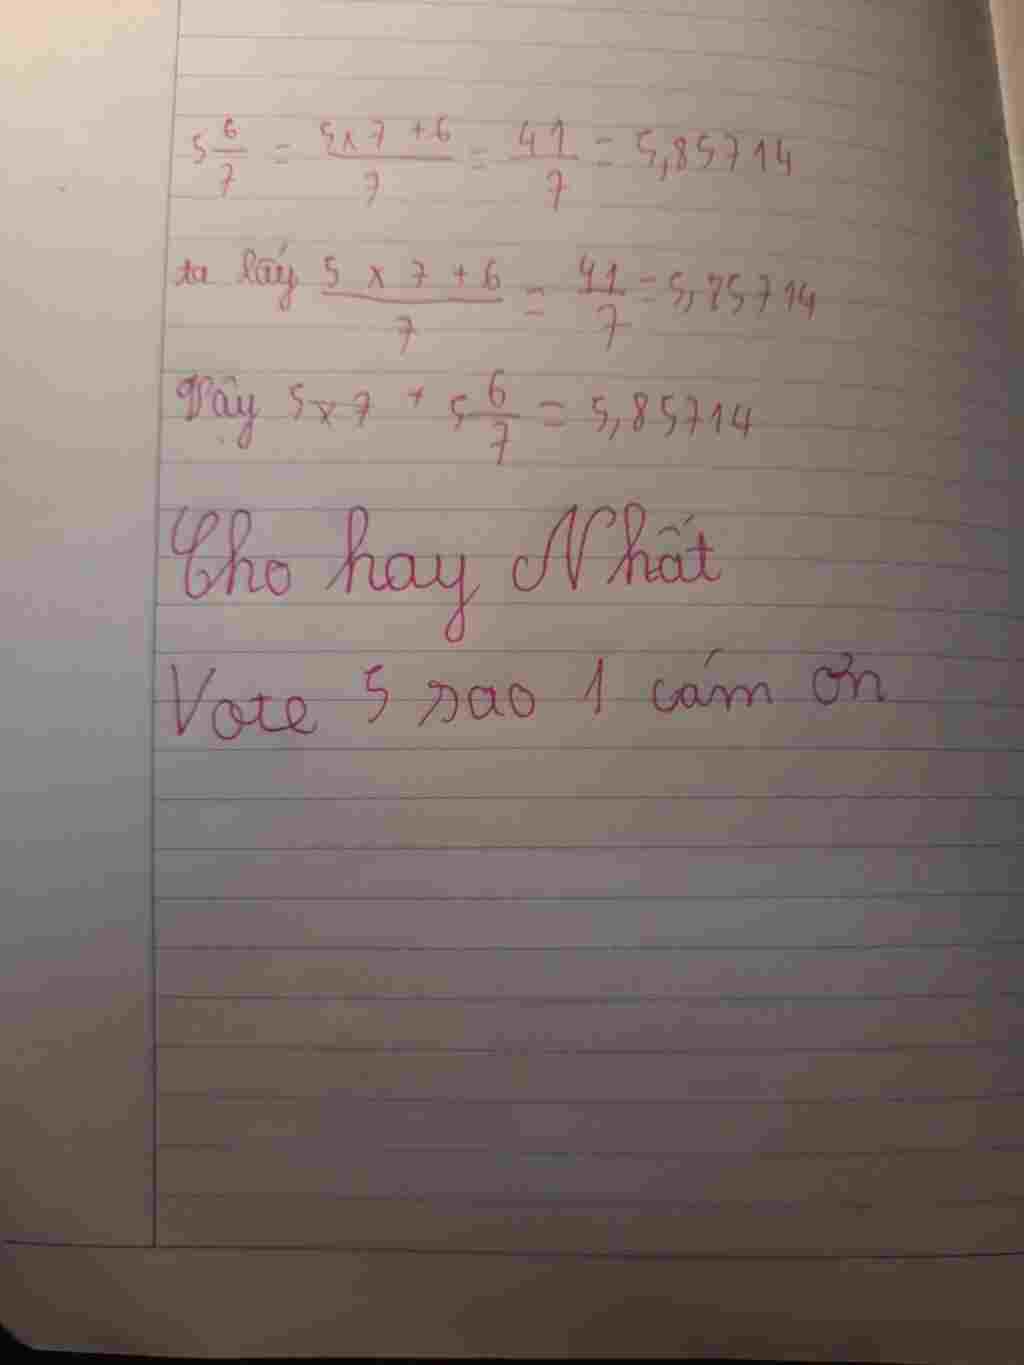 5 6/7 = 5x7+6/7 = 41/7 = 5,85714
ta lấy 5 x 7 + 6/7 = 41/7 = 5,85714
Vậy 5x7 + 5 6/7 = 5,85714
Cho hay Nhất
Vote 5 sao 1 cám ơn